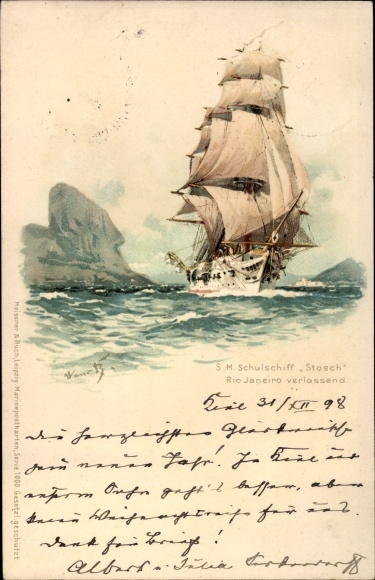 S. M. Schulschiff „Stosch"
Rio Janeiro verlassend.
Meissner & Buch, Leipzig. Marinepostkarten, Serie 1000 Gesetzl. geschützt
Kiel 31/XII 98
Die herzlichsten Glückwünsche
zum neuen Jahr! In Kiel
unserm geht's besser, aber
keine Weihnachtsreise für uns.
Dank für Brief!
Albert u. Julia